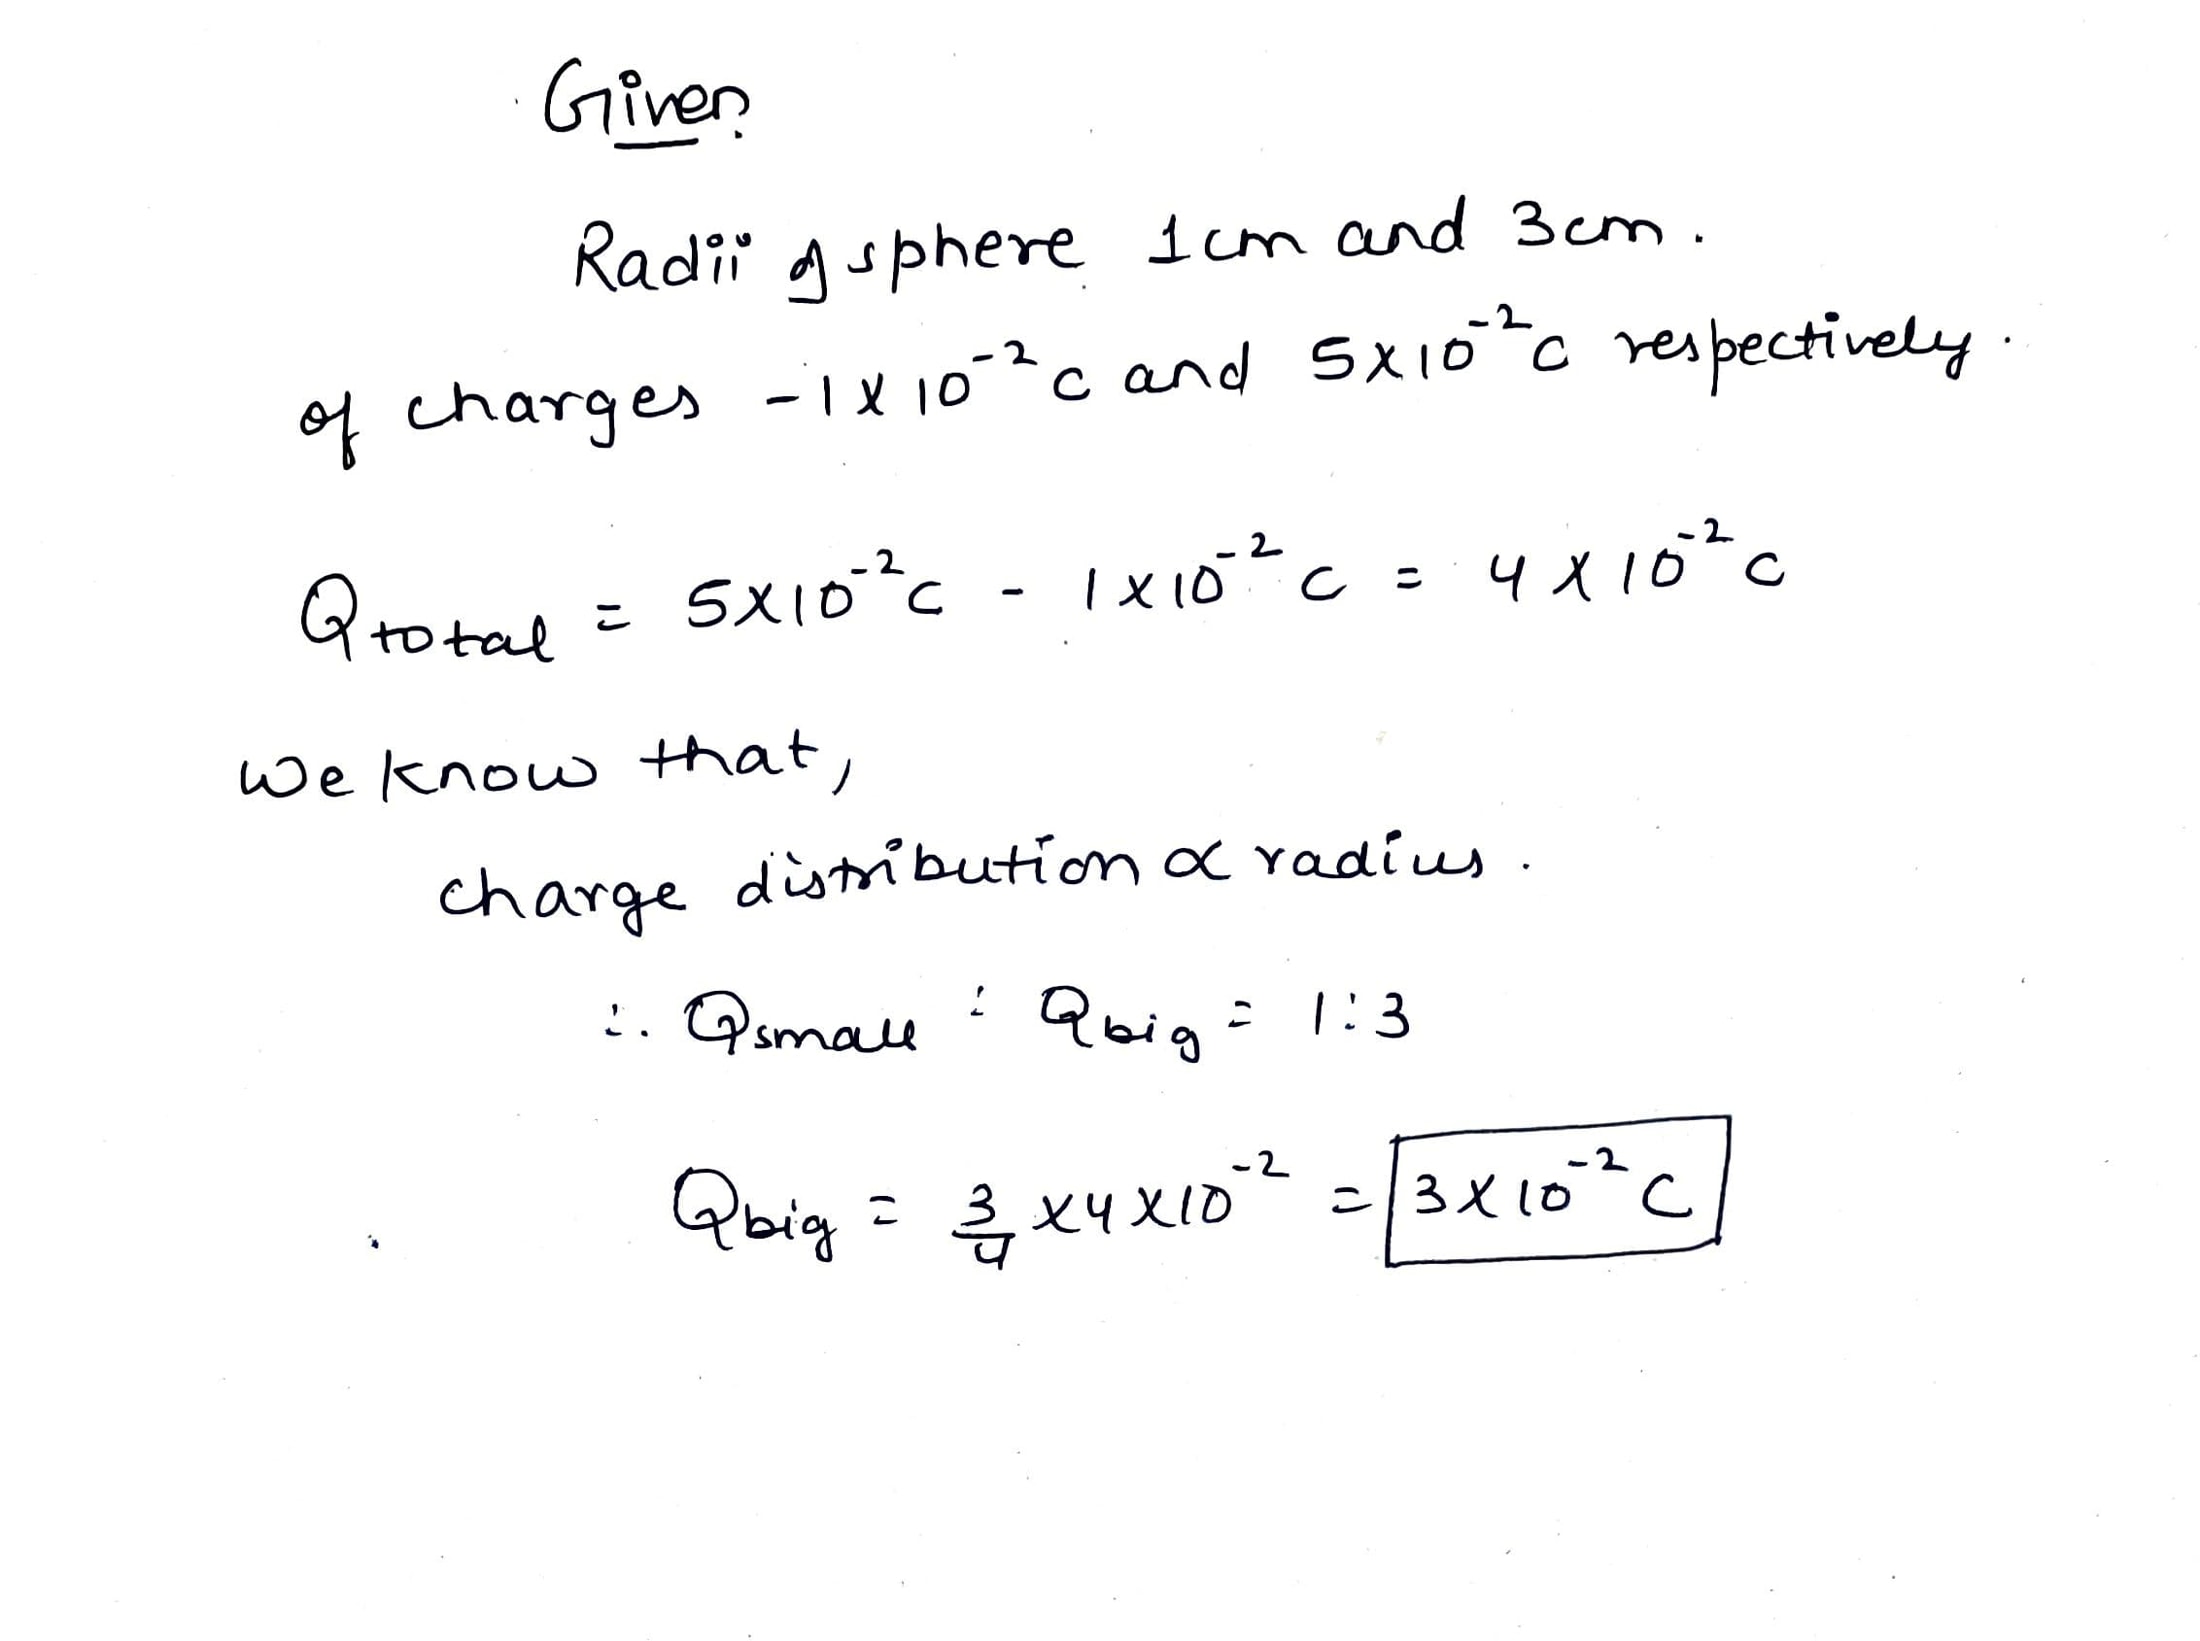 Given
Radii of sphere 1cm and 3cm.
of charges -1x10⁻² C and 5x10⁻² C respectively.
Qtotal = 5x10⁻² C - 1x10⁻² C = 4x10⁻² C
We know that,
charge distribution ∝ radius.
∴ Qsmall : Qbig = 1:3
Qbig = 3/4 x4x10⁻² = 3x10⁻² C